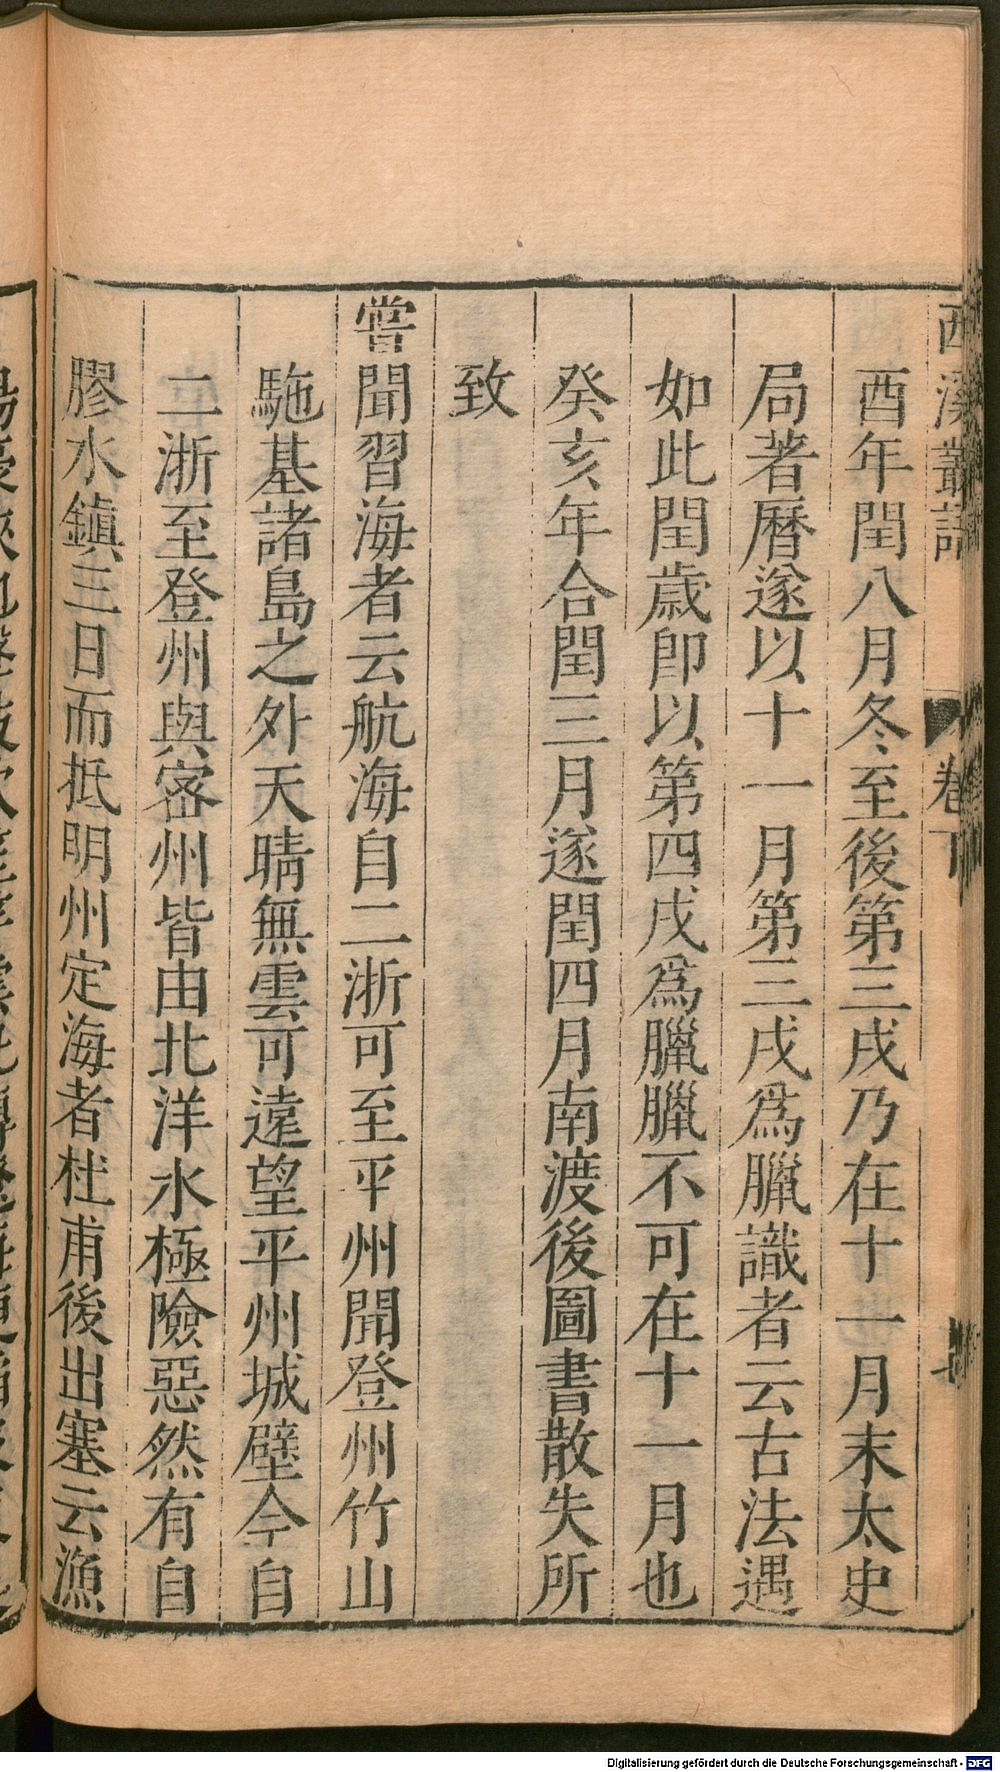 西溪叢語
卷下
酉年閏八月冬至後第三戌乃在十一月末太史
局著曆遂以十一月第三戌爲臘識者云古法遇
如此閏歲卽以第四戌爲臘臘不可在十一月也
癸亥年合閏三月遂閏四月南渡後圖書散失所
致
嘗聞習海者云航海自二浙可至平州聞登州竹山
駞基諸島之外天晴無雲可遠望平州城壁今自
二浙至登州與密州皆由北洋水極險惡然有自
膠水鎮三日而抵明州定海者杜甫後出塞云漁
Digitalisierung gefördert durch die Deutsche Forschungsgemeinschaft - DFG